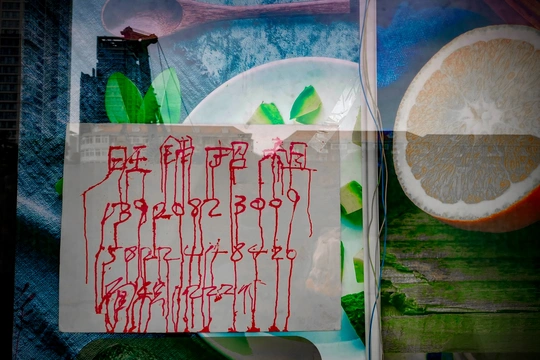 旺铺招租
13920823009
15822448420
面积